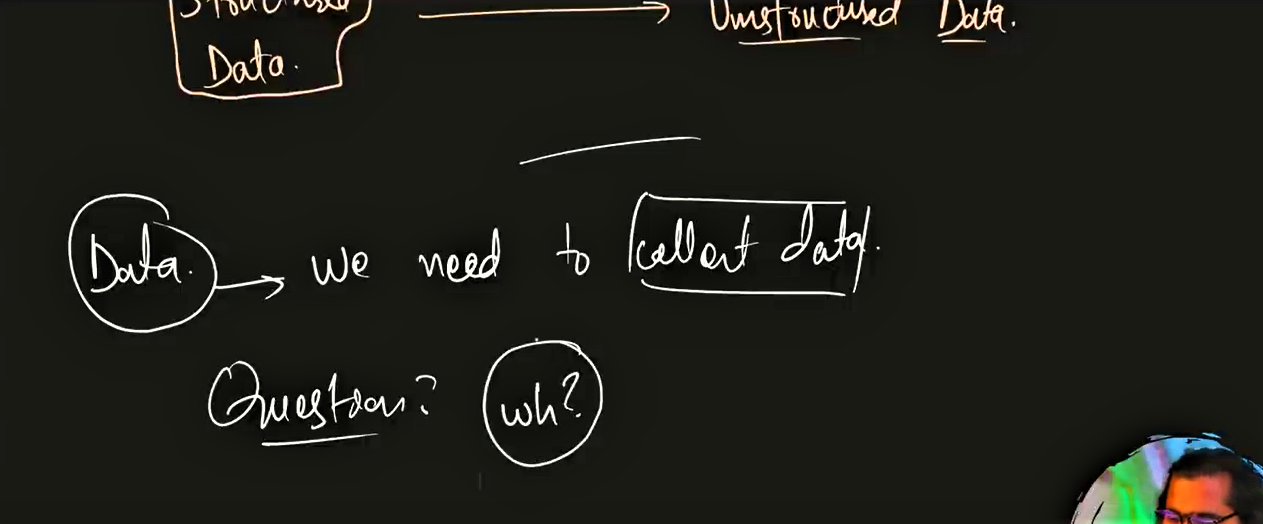 Structured Unstructured Data.
Data.
Data. → we need to collect data.
Question? wh?